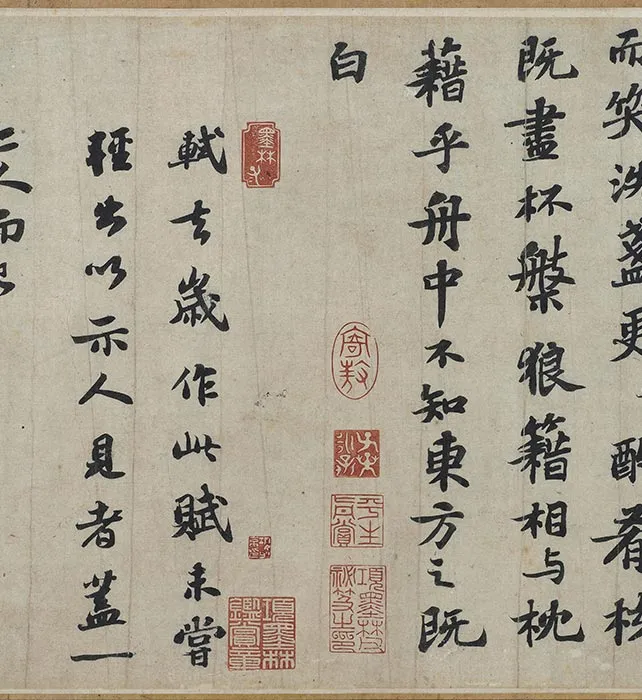 而笑洗盞更酌肴核
既盡杯槃狼籍相与枕
藉乎舟中不知東方之既
白
軾去歲作此賦未嘗
輕出以示人見者蓋一
二人而已
墨林子
寄敖
平生真賞
項墨林父祕笈之印
項墨林鑑賞章